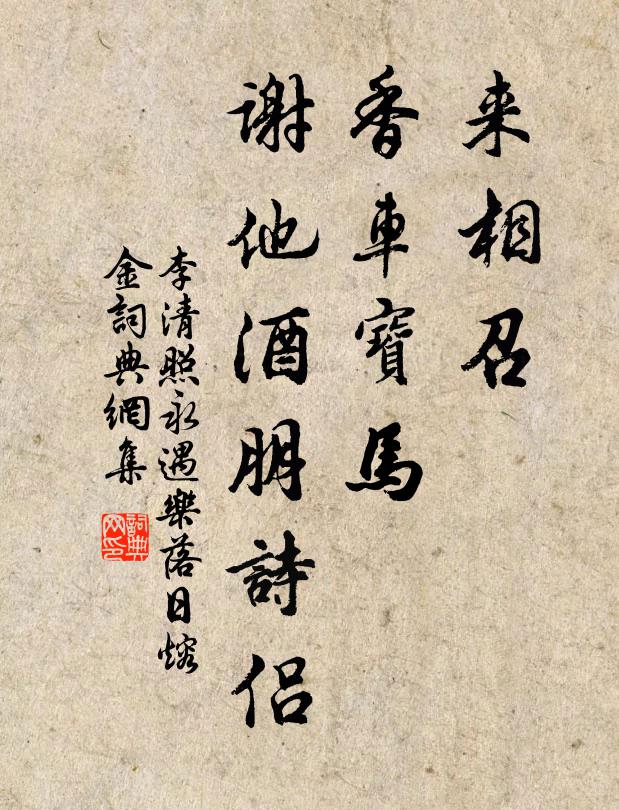 来相召
香車寶馬
謝他酒朋詩侶
李清照永遇樂落日熔
金詞典網集
詞典
网印